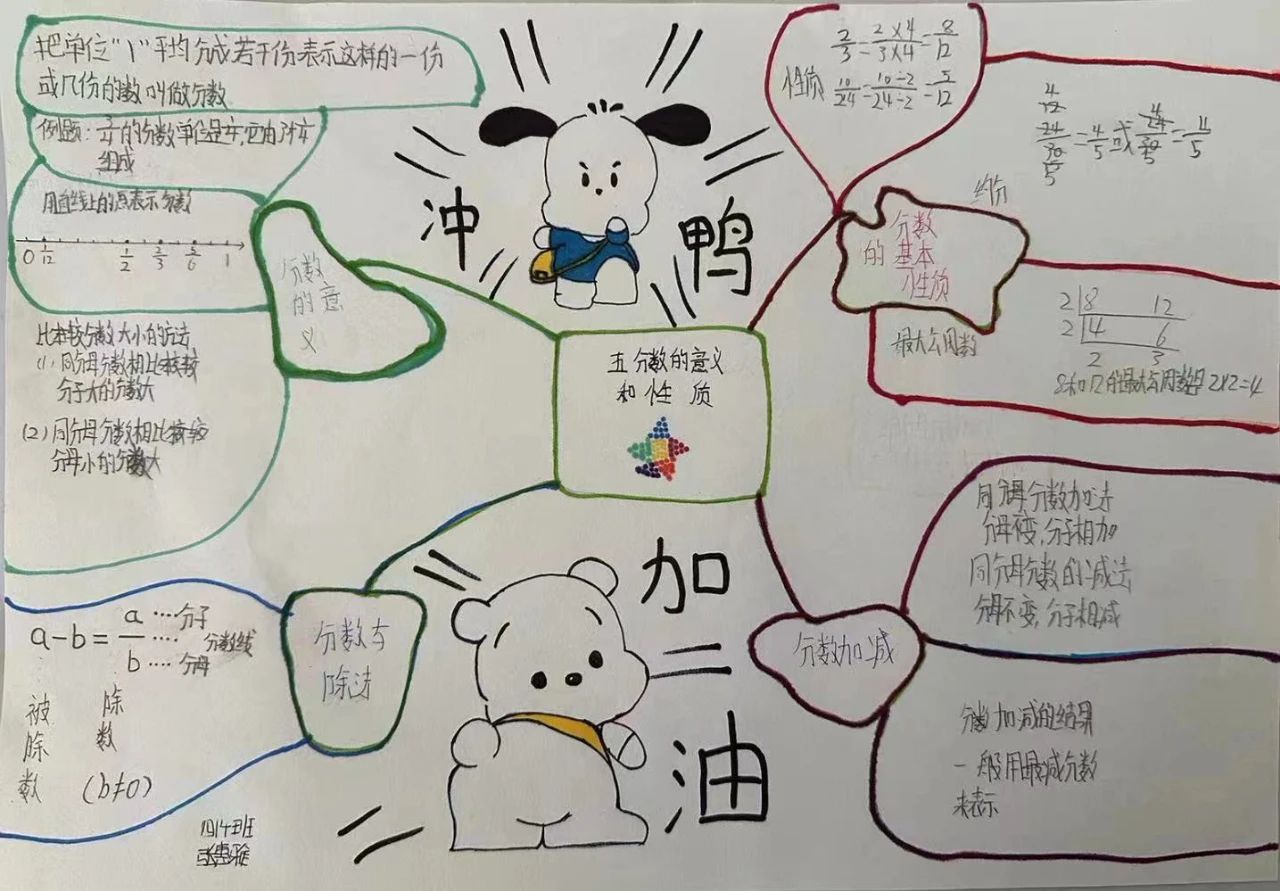 把单位"1"平均分成若干份表示这样的一份
或几份的数叫做分数
例题:
的分数单位是
组成
用直线上的点表示分数
0 1/12 1/2 2/3 5/6 1
比本较分数大小的方法
(1)同分母分数相比较较
分子大的分数大
(2)同分母分数相比较较
分母小的分数大
分数
的意
义
冲
鸭
五分数的意义
和性质
性质
2/3=2×4/3×4=8/12
10/24=10-2/24-2=5/12
分数
的基本
性质
约份
=4/5或
最大公因数
2 8 12
2 4 6
2 3
8和12的最大公因数是2×2=4
同分母分数加法
分母不变,分子相加
同分母分数的减法
分母不变,分子相减
分数加减
分数加减的结果
一般用最减分数
来表示
分数与
除法
a-b=a/b
分子
分数线
分母
被除数
除数
(b≠0)
加
油